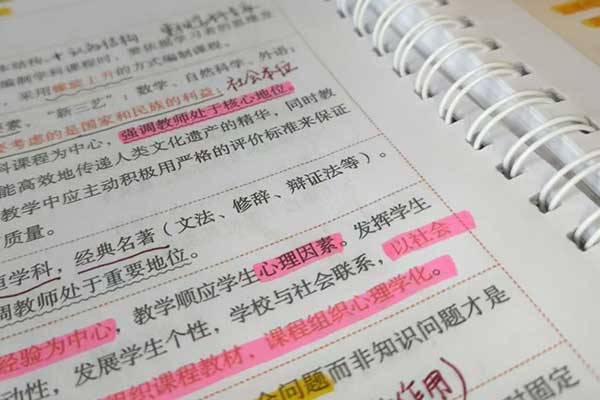 本结构，十认知结构
编制学科课程时，要依据学习者的思维发
采用螺旋上升的方式编制课程。
"新三艺"：数学、自然科学、外语；
要考虑的是国家和民族的利益；社会本位
科课程为中心，强调教师处于核心地位。
能高效地传递人类文化遗产的精华，同时教
教学中应主动积极用严格的评价标准来保证
质量。
学科，经典名著（文法、修辞、辩证法等）。
调教师处于重要地位。
经验为中心，教学顺应学生心理因素。发挥学生
动性，发展学生个性，学校与社会联系，以社会
组织课程教材，课程组织心理学化。
会问题而非知识问题才是
作用）
固定